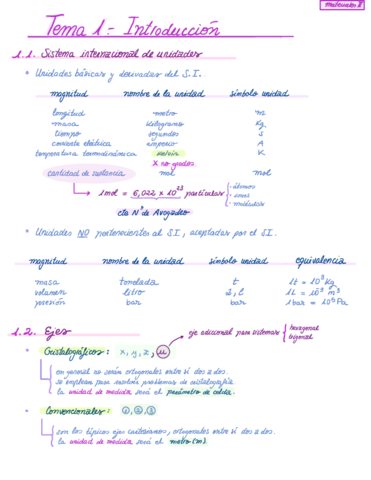 materiales I
Tema 1.- Introducción
1.1. Sistema internacional de unidades
• Unidades básicas y derivadas del S.I.
magnitud nombre de la unidad símbolo unidad
longitud metro m
masa kilogramo Kg
tiempo segundos s
corriente eléctrica amperio A
temperatura termodinámica kelvin K
X no grados
cantidad de sustancia mol mol
1mol = 6,022 x 10²³ partículas átomos
iones
moléculas
cte Nº de Avogadro
• Unidades NO pertenecientes al S.I., aceptadas por el S.I.
magnitud nombre de la unidad símbolo unidad equivalencia
masa tonelada t 1t = 10³ Kg
volumen litro L, l 1L = 10⁻³ m³
presión bar bar 1 bar = 10⁵ Pa
1.2. Ejes
eje adicional para sistemas hexagonal
trigonal
• Cristalográficos: x, y, z, u
en general no serán ortogonales entre sí dos a dos.
se emplean para resolver problemas de cristalografía
la unidad de medida será el parámetro de celda.
• Convencionales: 1, 2, 3
son los típicos ejes cartesianos, ortogonales entre sí dos a dos.
la unidad de medida será el metro (m).